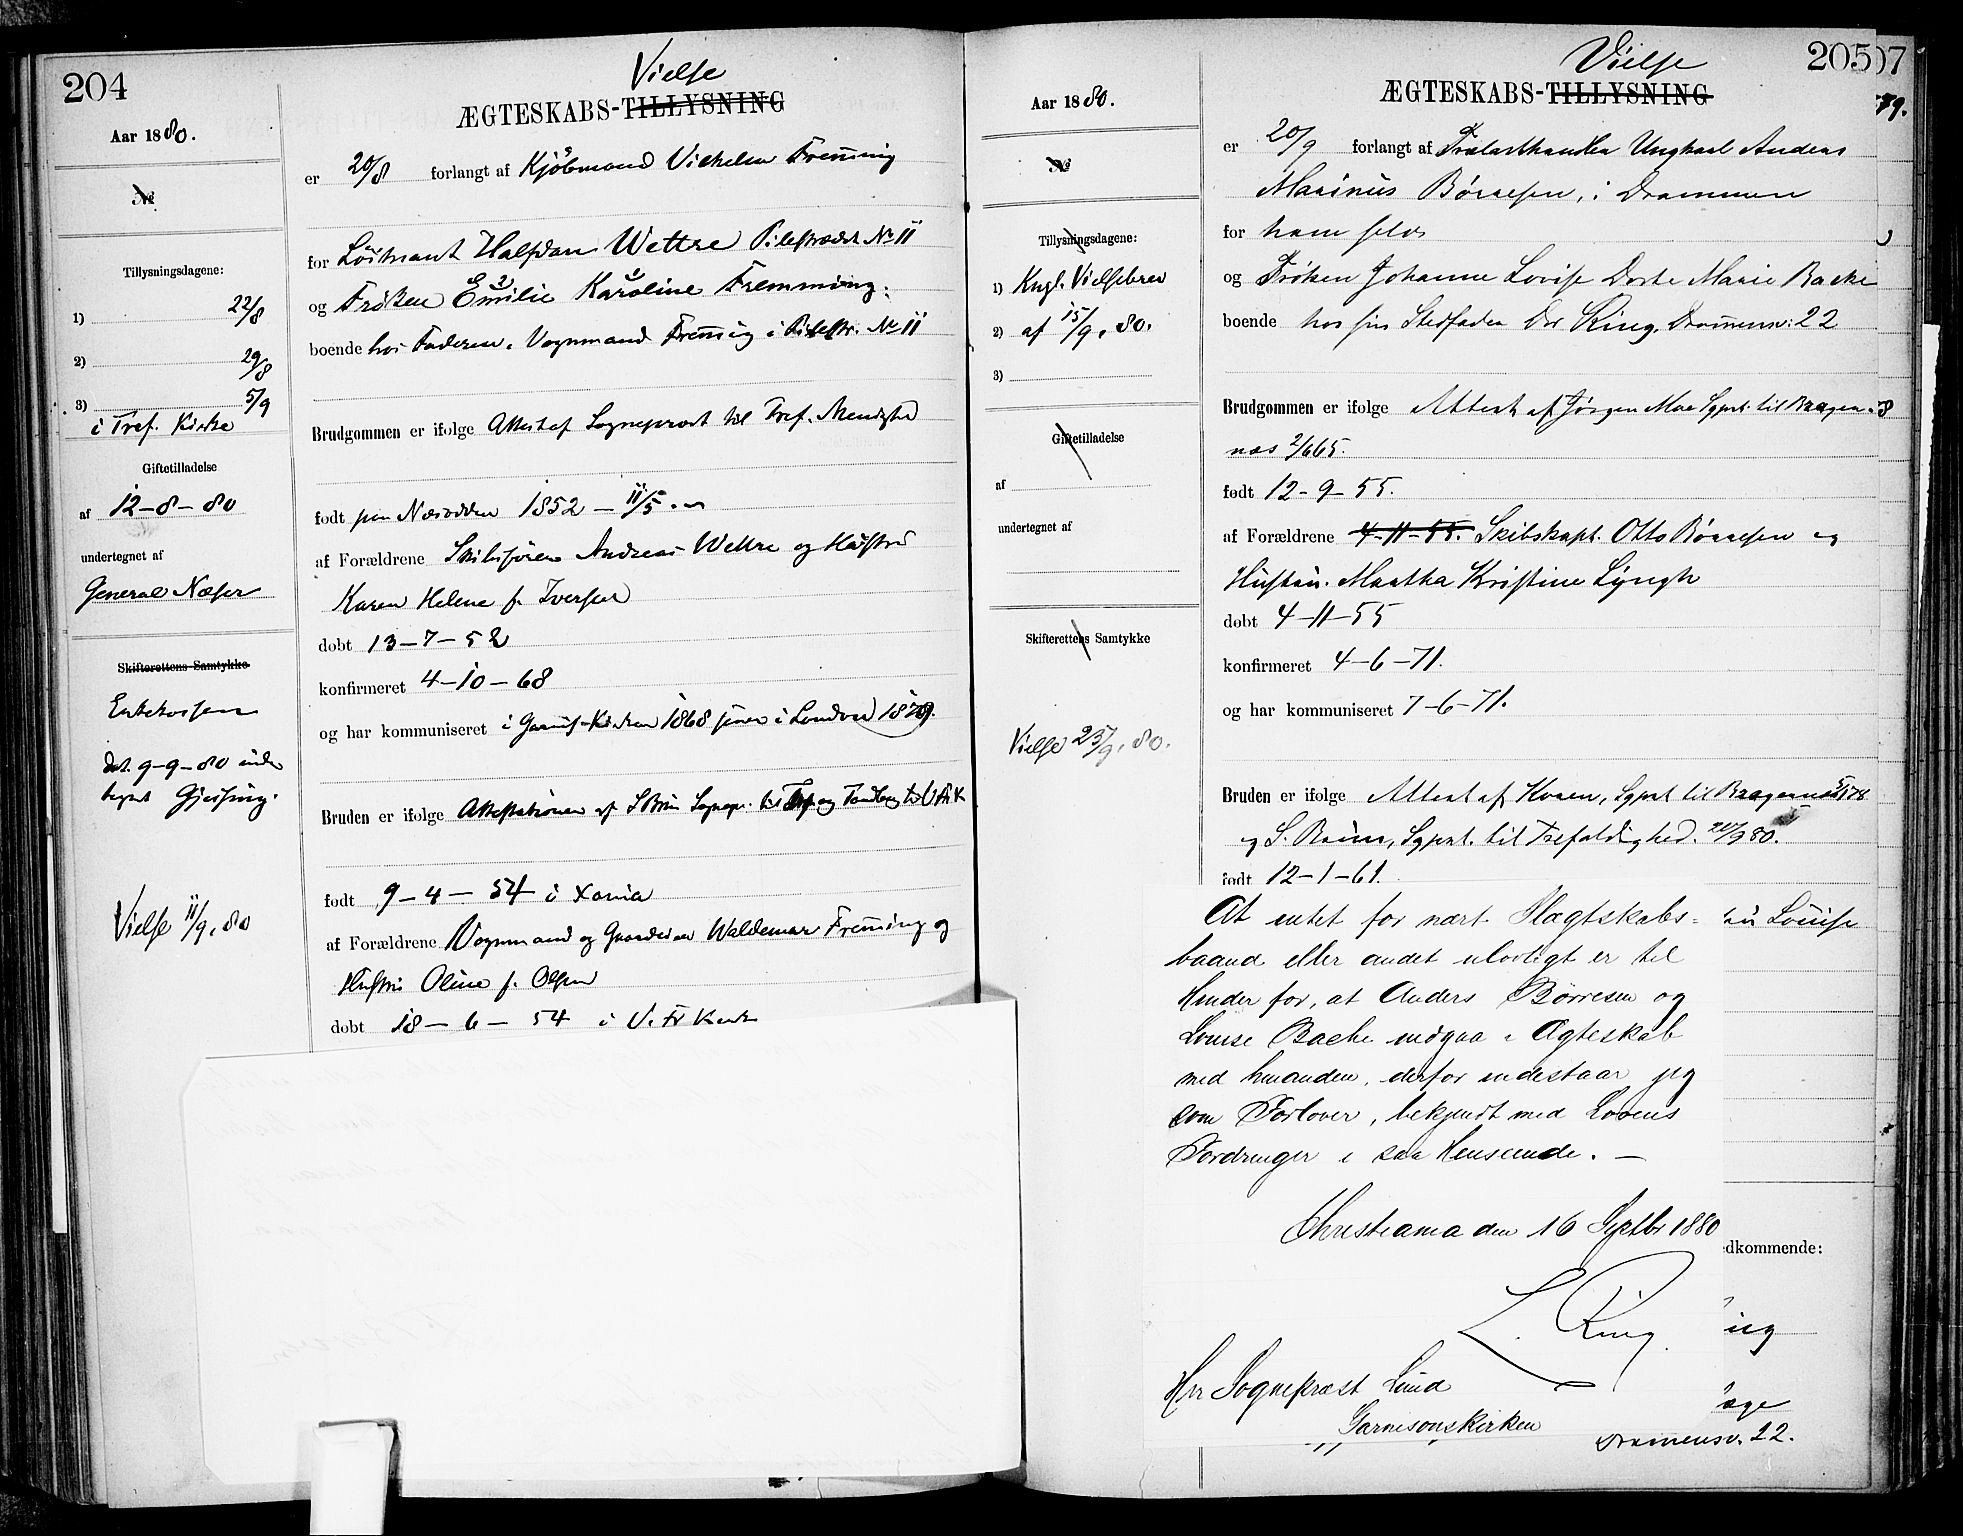 204
Vielse
ÆGTESKABS-TILLYSNING
Aar 1880.
№
Tillysningsdagene:
1) 22/8
2) 29/8
3) 5/9
i Tref. Kirke
Giftetilladelse
af 12-8-80
undertegnet af
General Næser
Skifterettens Samtykke
dat. 9-9-80
Vielse 11/9. 80
er 20/8 forlangt af Kjöbmand Vilhelm Fremming
for Löitnant Halfdan Wettre Pilestrædet No 11
og Fröken Emilie Karoline Fremming.
boende hos Faderen, Vognmand Fremming i Pilestr. No 11
Brudgommen er ifølge Attest af Sogneprest til Tref. Menighed
født paa Næsodden 1852 - 11/5
af Forældrene Andreas Wettre og Hustru
Karen Helene f. Iversen
døbt 13-7-52
konfirmeret 4-10-68
og har kommuniseret i Garnis-Kirken 1868 i London 1879.
Bruden er ifølge Attestationer af
født 9-4-54 i Xania
af Forældrene Vognmand og Gaardeier Waldemar Fremming og
Hustru Oline f. Olsen
døbt 18-6-54 i V. Fr Kirke
205
07
79.
Vielse
ÆGTESKABS-TILLYSNING
Aar 1880.
№
Tillysningsdagene:
1) Kngl. Vielsebrev
2) af 15/9. 80.
3)
Giftetilladelse
af
undertegnet af
Skifterettens Samtykke
Vielse 25/9. 80.
er 20/9 forlangt af Trælasthandler Ungkarl Anders
Marinus Børresen, i Drammen
for ham selv
og Frøken Johanne Lovise Dorte Marie Bache
boende hos sin Stedfader Dr Ring, Drammensv: 22
Brudgommen er ifølge Attest af Jørgen Moe Sgprt. til Bragernæs 2/6 65.
født 12-9-55.
af Forældrene 4-11-55. Skibskapt. Otto Børresen og
Hustru. Martha Kristine Lyngh
døbt 4-11-55
konfirmeret 4-6-71.
og har kommuniseret 7-6-71.
Bruden er ifølge Attest af Sgprt. til Bragernæs
og S. Sgprt. til Trefoldighed. 20/9 80.
født 12-1-61.
Louise
At intet for nært Slægtskabs-
baand eller andet ulovligt er til
Hinder for, at Anders Børresen og
Louise Bache indgaa i Ægteskab
med hinanden, derfor indestaar jeg
som Forlover, bekjendt med Lovens
Fordringer i saa Henseende. —
Christiania den 16 Septbr 1880
L. Ring
Hrr Sognepræst Lund
Garnisonskirken
dkommende:
ing
æge
Dramensv. 22.